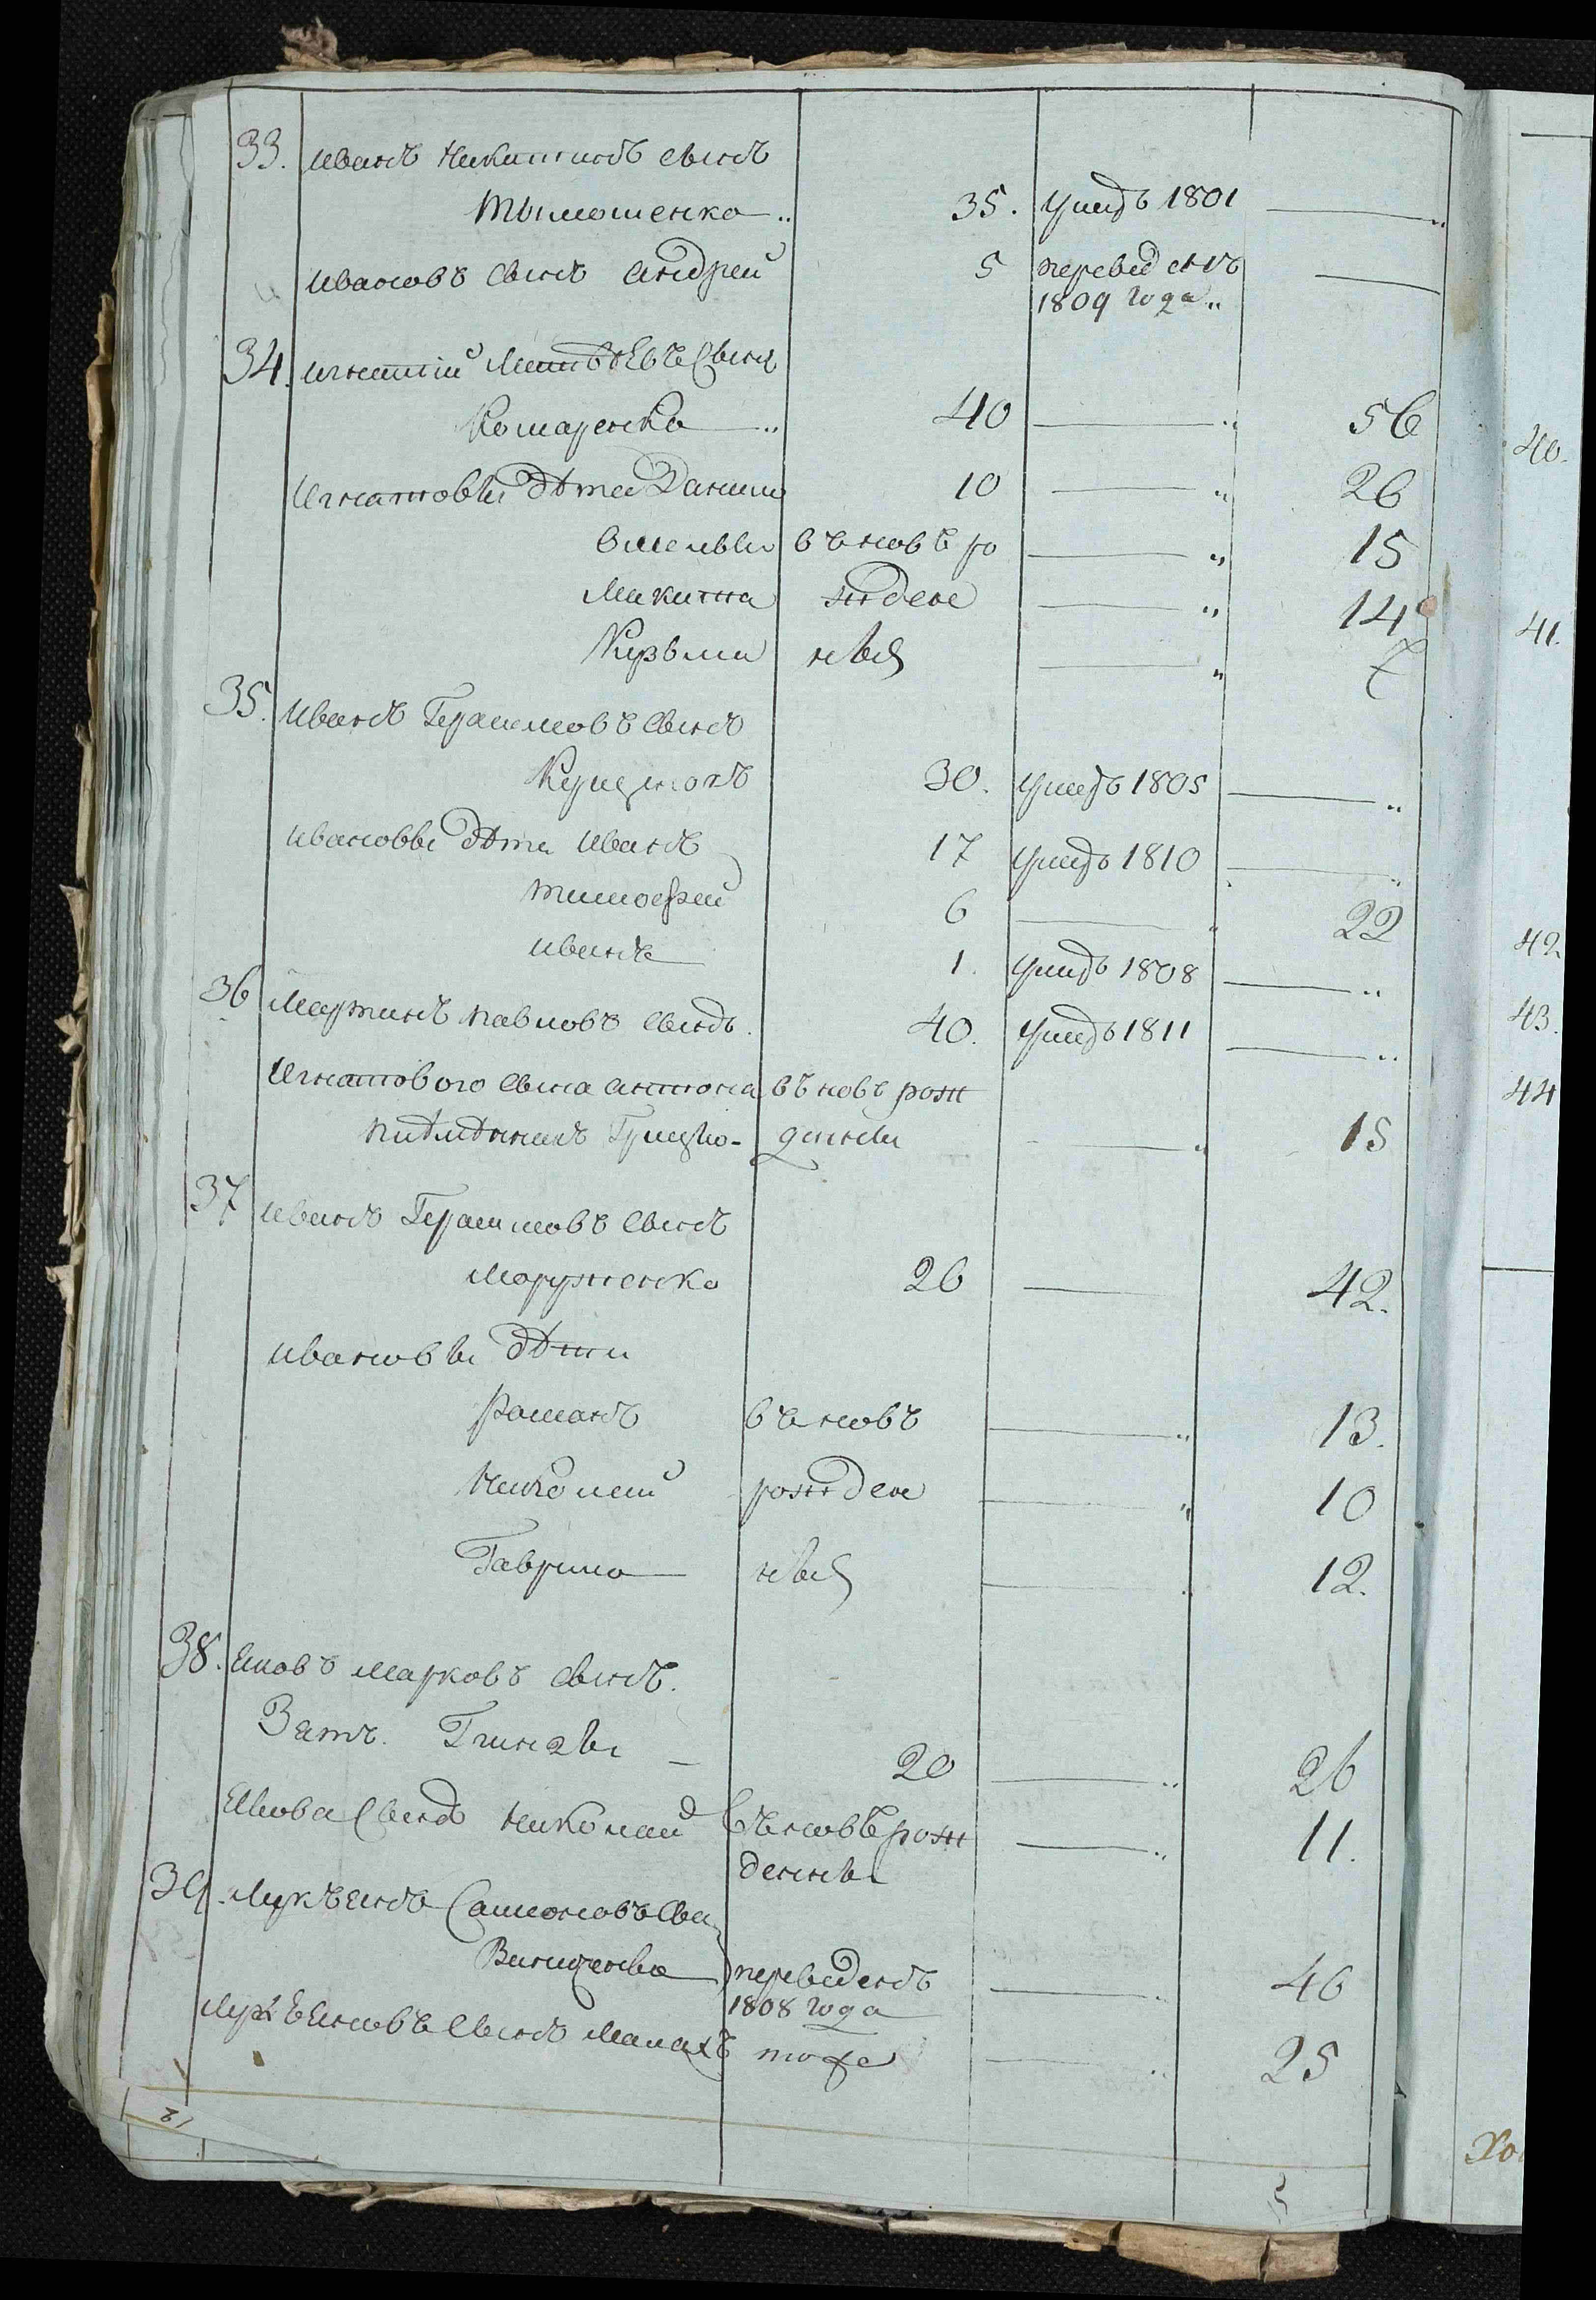 33. Иванъ Никитинъ сынъ
Тымошенко 35. умеръ 1801
Ивановъ сынъ Андрей 5 переведенъ
1809 года
34. Игнатій Матвѣевъ Сынъ
Комаренко 40 56
Игнатовы дѣти Данило 10 26
Омелько въ новъ ро 15
Микита жденн 14
Кузьма ные 7
35. Иванъ Герасимовъ Сынъ
30. умеръ 1805
Ивановы дѣти Иванъ 17 умеръ 1810
Тимофей 6 22
Иванъ 1. умеръ 1808
36 Мартинъ Павловъ сынъ. 40. умеръ 1811
Игнатового сына Антона въ новъ рож
племѣнникъ денны 15
37 Иванъ Герасимовъ Сынъ
Моруженко 26 42.
Ивановы дѣти
Романъ въ новъ 13.
Николай рожден 10
Гаврило ные 12.
38. Яковъ Марковъ сынъ.
Зять Глинзы 20 26
Якова Сынъ Николай въ новъ рож 11.
денны
39. Лукъянъ Самоновъ Сы
Винниченко переведенъ 46
1808 года
Лукъяновъ Сынъ Малахъ тоже 25
12
40.
41.
42
43.
44
Хо